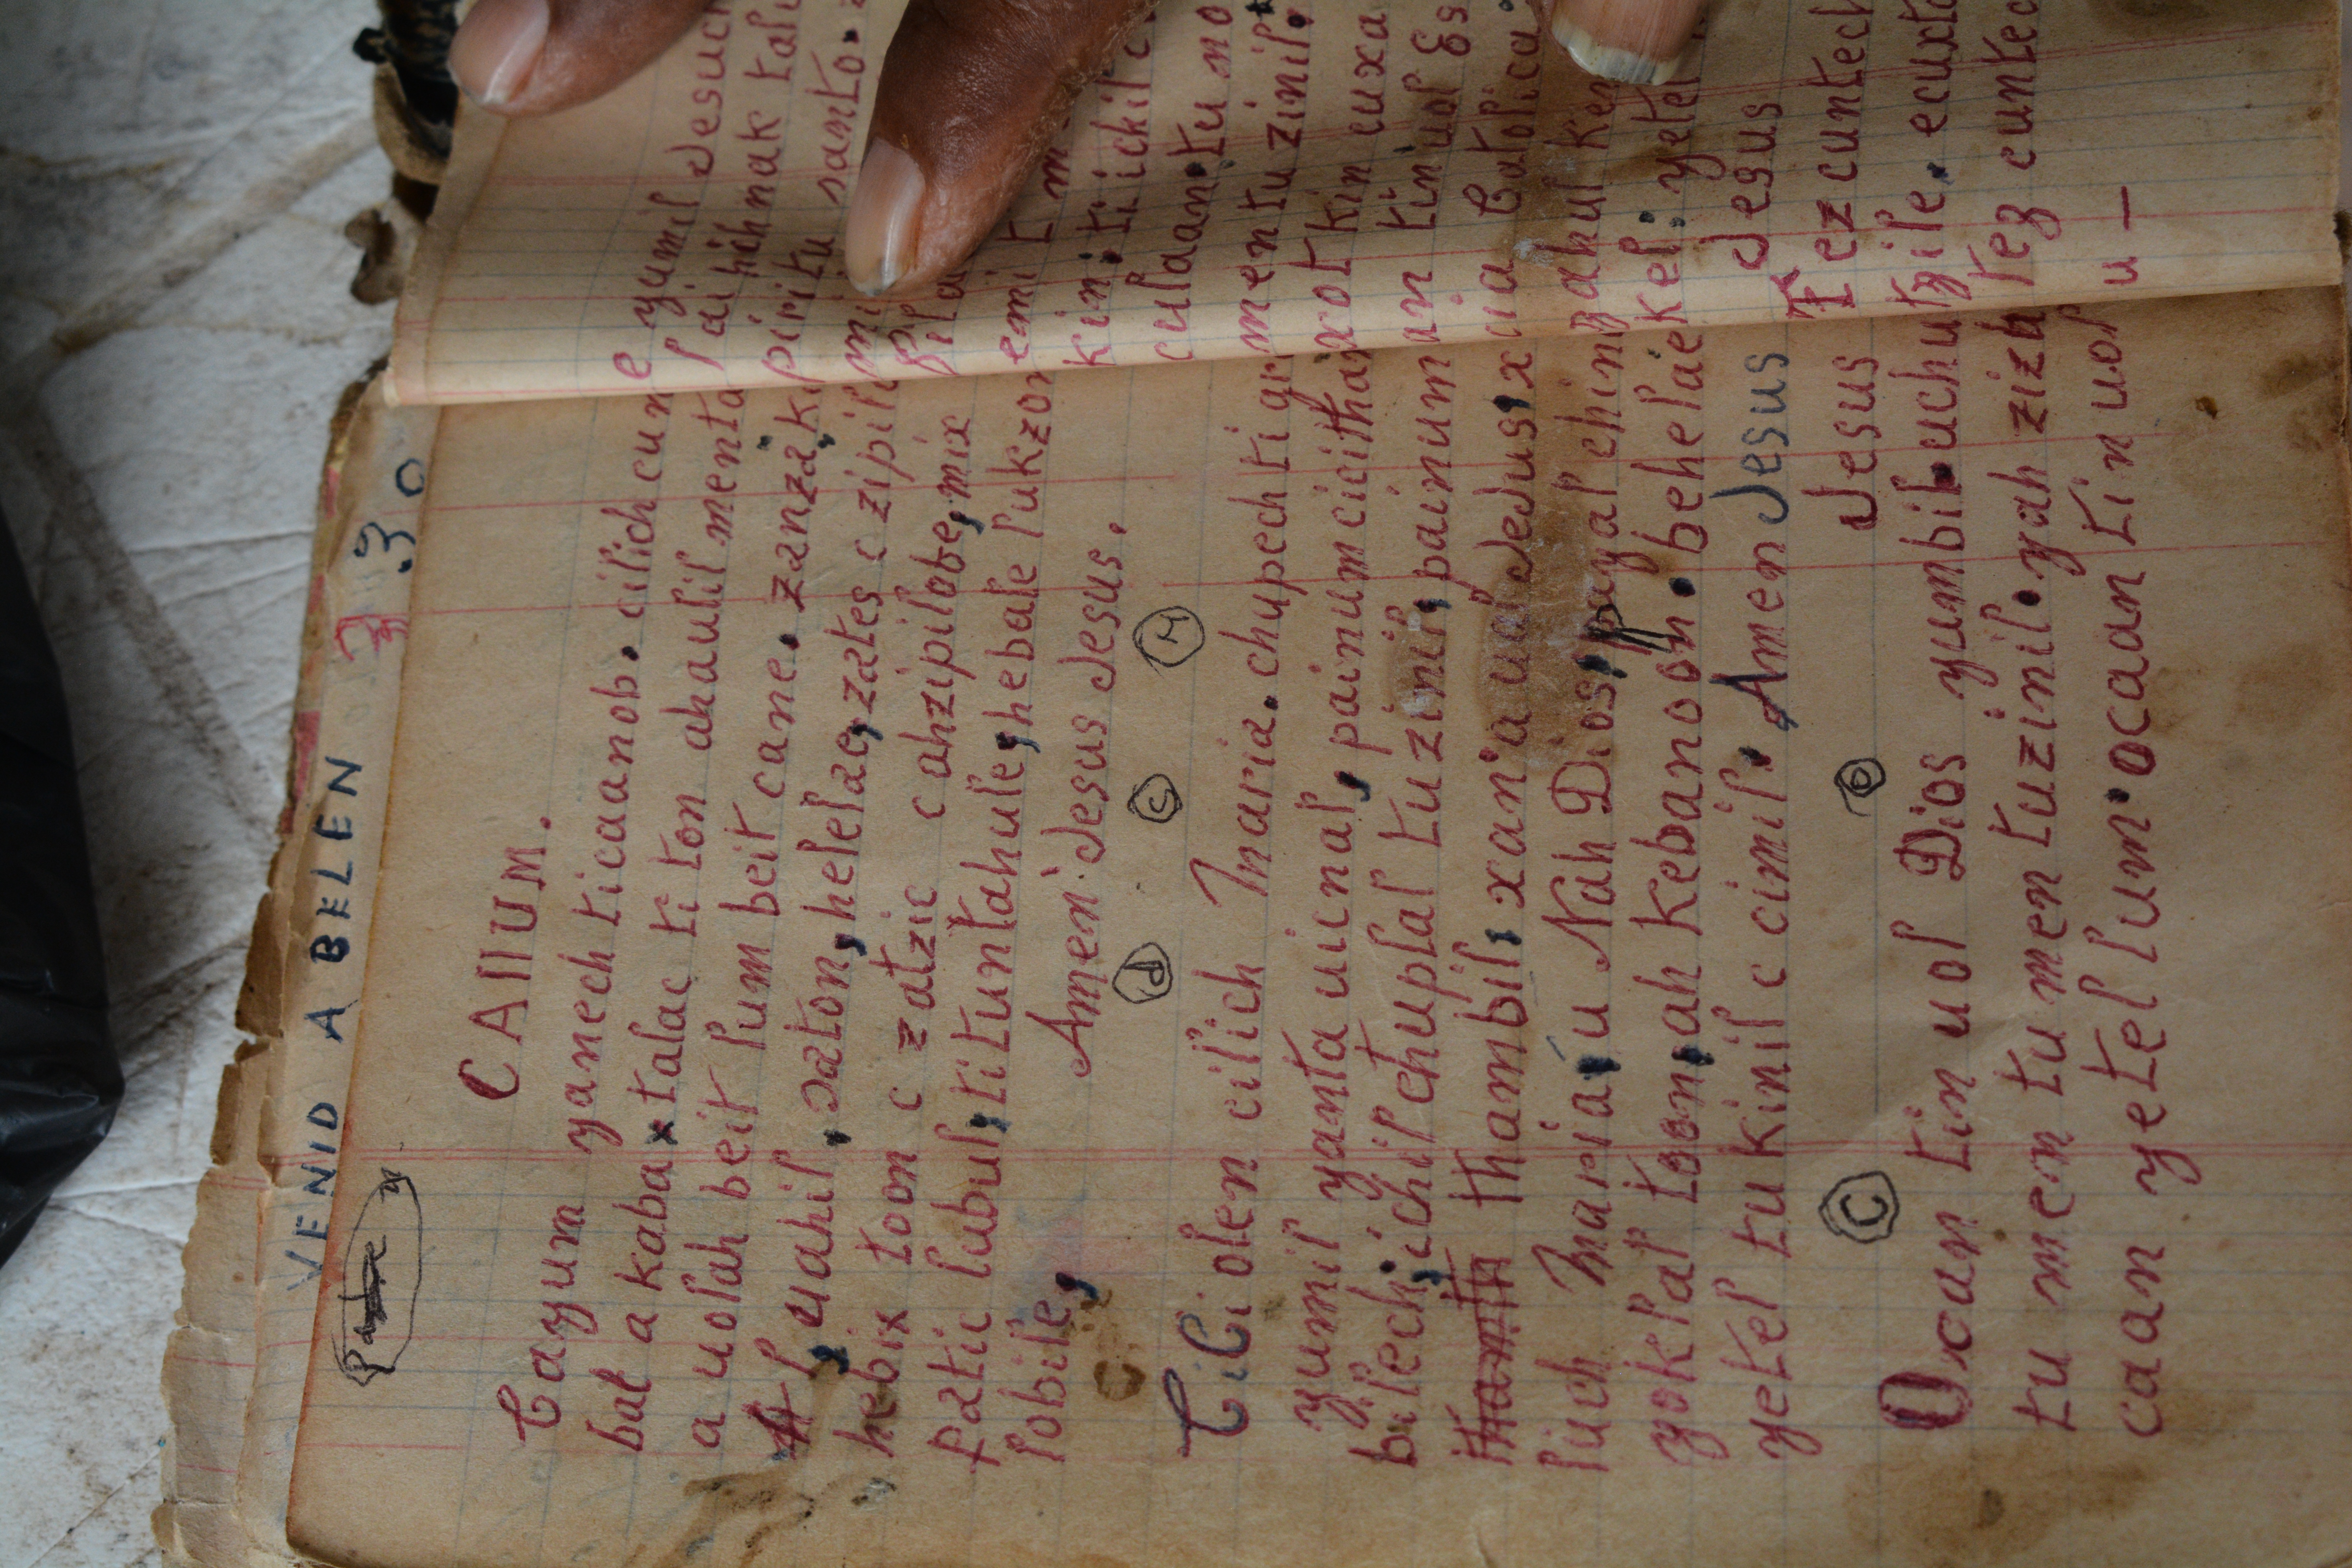 VENID A BELEN
Padre
30
CAIIUM.
Cayum yanech ticaanob. cilich cun
bal a kaba x talac ti ton ahaulil menta
a uolah beit lum beit cane. zanzak
uahil, zaton, helelae, zates c zipil
hebix toon c zatzic c ahzipilobe, mix
patic lubul, ti tuntahule, hebale lukzon
lobile, Amen Jesus Jesus.
d c M
CiCiolen cilich Maria. chupech ti gr
yumil yanta uicnal, painumcicitha
bilech, ichil chuplal tuzinil, painum
thamta thambil, xan a ua Jesus, x
luch Maria, u Nah Dios, payal ching
yoklal toon, ah Kebanoon. behelae
yetel tu kinil c cimil. Amen Jesus
C e Jesus
Ocan tin uol Dios yumbil. uchu
tu men tu men tuzinil. yah zizb
caan yetel lum. ocaan tin uol
e yumil Jesuc
laihchmak talu
piritu santo.
emi t m
kin, ti lickil c
culaan. tu no
mentuzinil.
xotkin cuxa
an tin uol Es
cia Catolica.
zahul ken
kel: yetel
Jesus
Tezcuntech
tzile. ecuxta
tez cuntec
u —